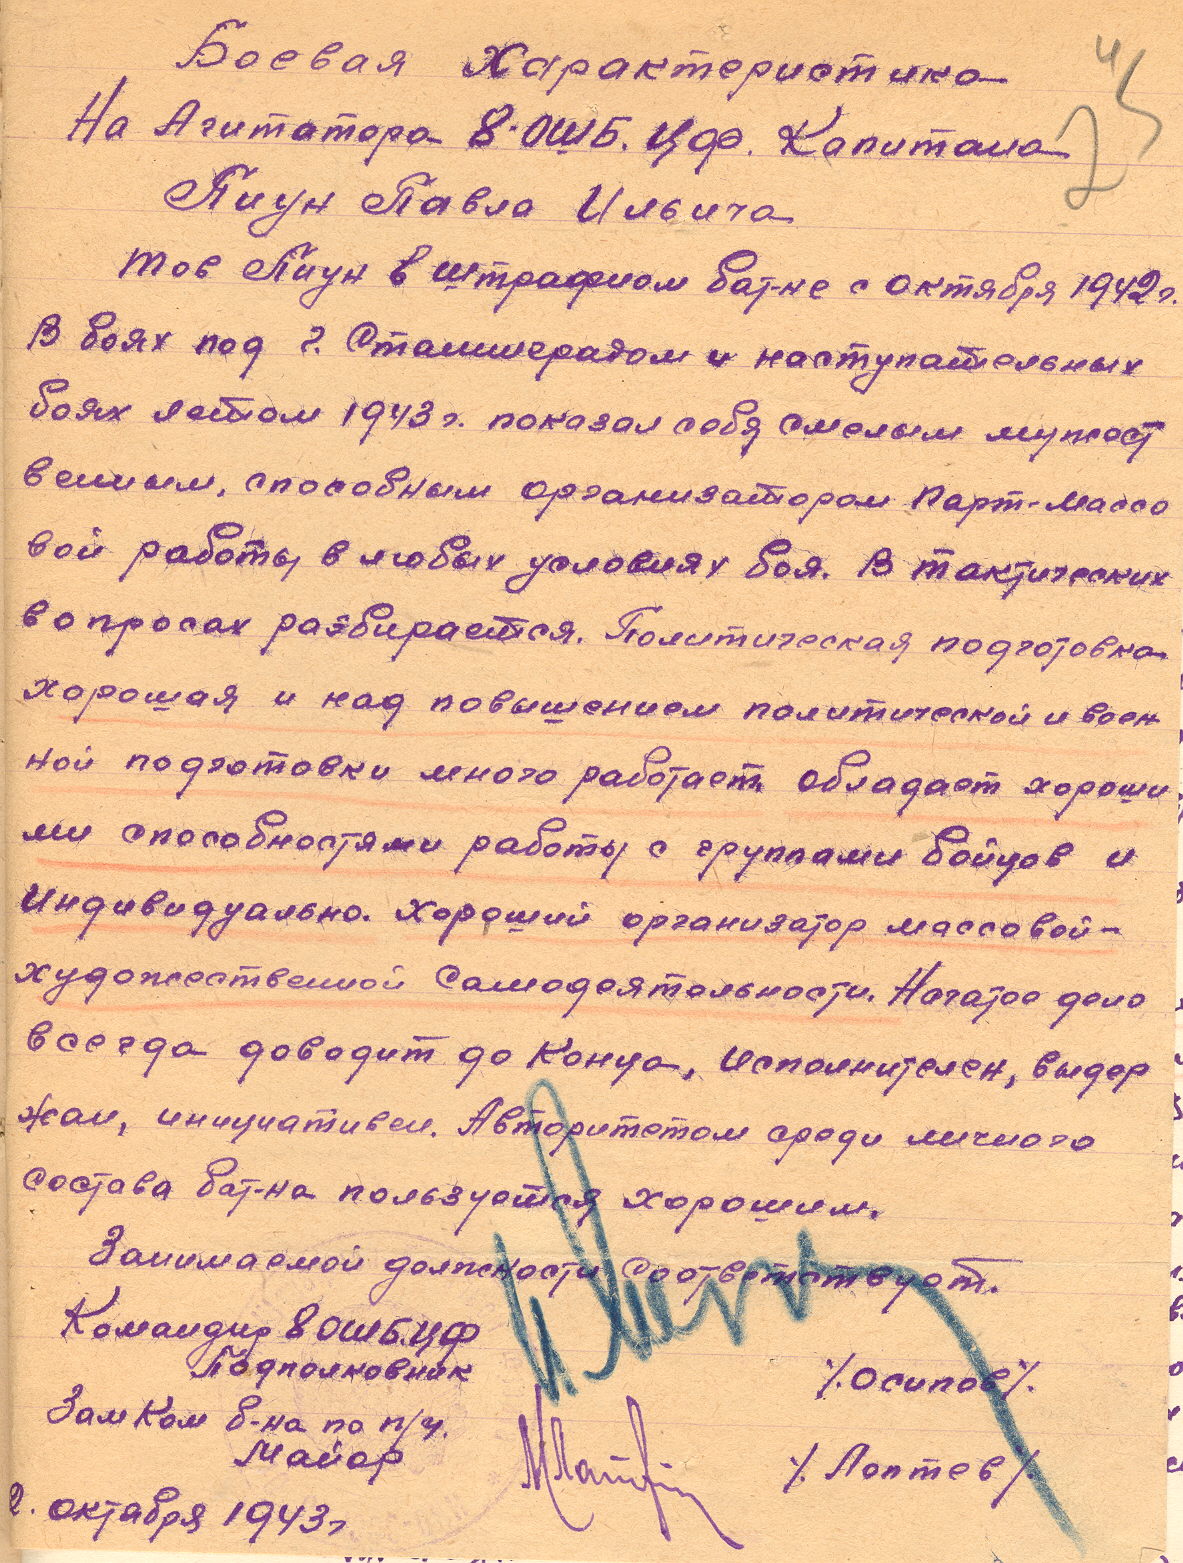 Боевая характеристика
На Агитатора 8-ОШБ. ЦФ. Капитана
Пиун Павла Ильича
Тов Пиун в штрафном бат-не с октября 1942 г.
В боях под г. Сталинградом и наступательных
боях летом 1943 г. показал себя смелым мужест
венным, способным организатором парт-массо
вой работы в любых условиях боя. В тактических
вопросах разбирается. Политическая подготовка
хорошая и над повышением политической и воен
ной подготовки много работает. Обладает хороши
ми способностями работы с группами бойцов и
индивидуально. Хороший организатор массовой-
художественной самодеятельности. Начатое дело
всегда доводит до конца, исполнителен, выдер
жан, инициативен. Авторитетом среди личного
состава бат-на пользуется хорошим.
Занимаемой должности соответствует.
Командир 8 ОШБ.ЦФ
Подполковник /.Осипов/.
Зам Ком б-на по п/ч.
Майор /. Лаптев/.
2. октября 1943 г